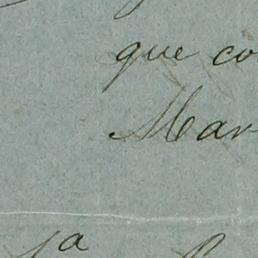 que co
Mar
a